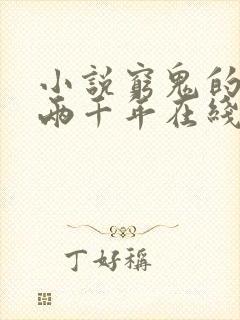 小說窮鬼的
兩千年在綫
丁好稱